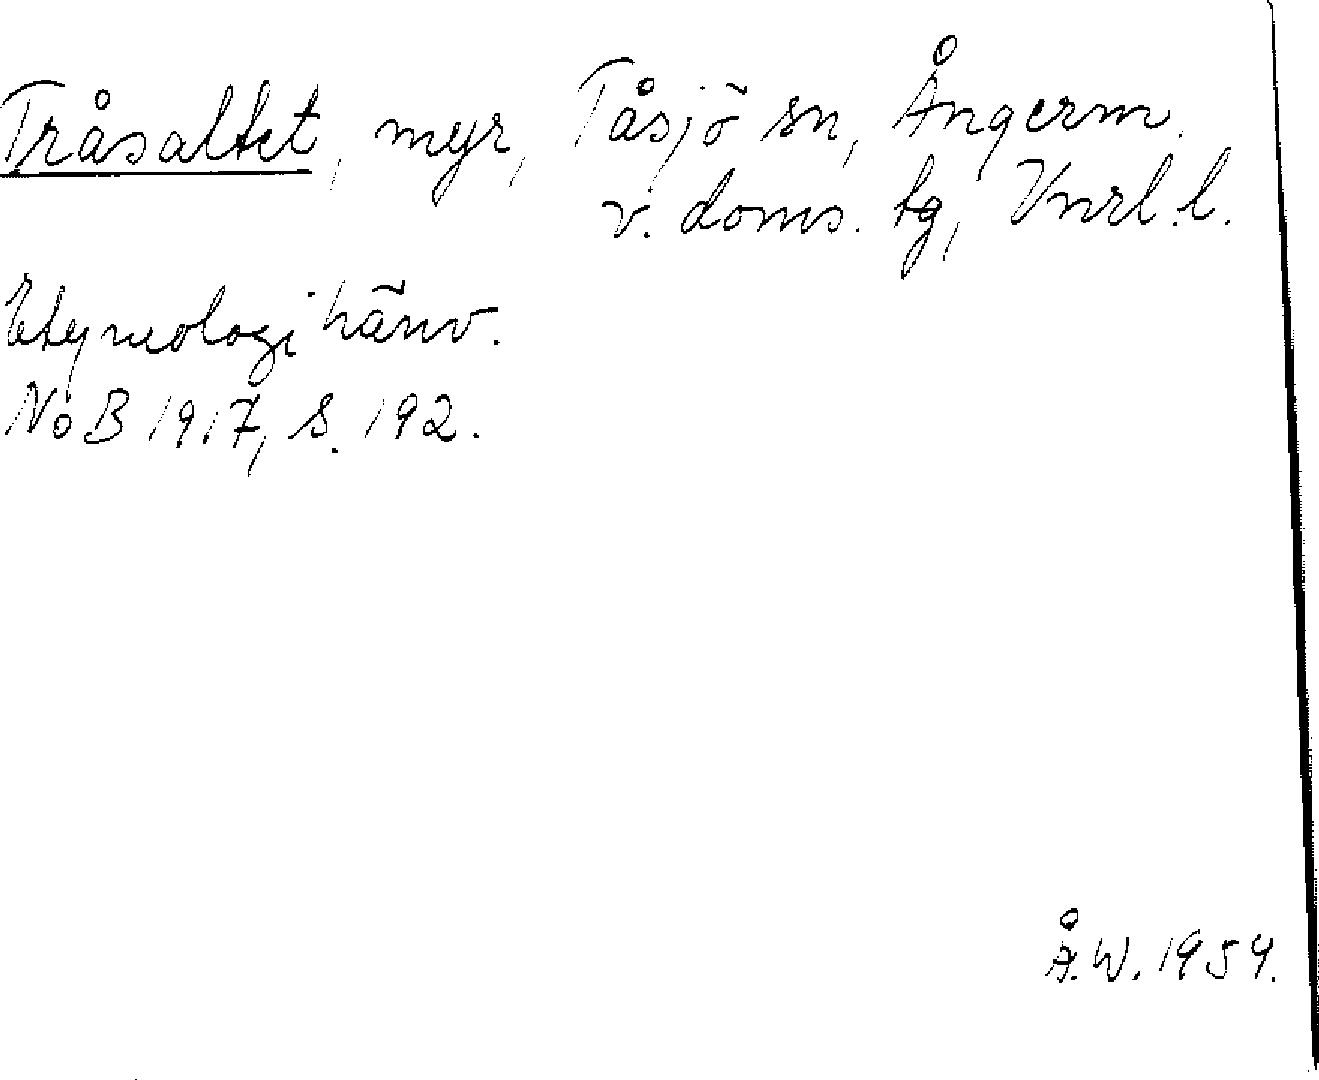 Tråsaltet, myr, Tåsjö sn, Ångerm.
v. doms. tg, Vnrl. l.
Etymologi hänv.
NoB 1917, s. 192.
Å.W. 1954.